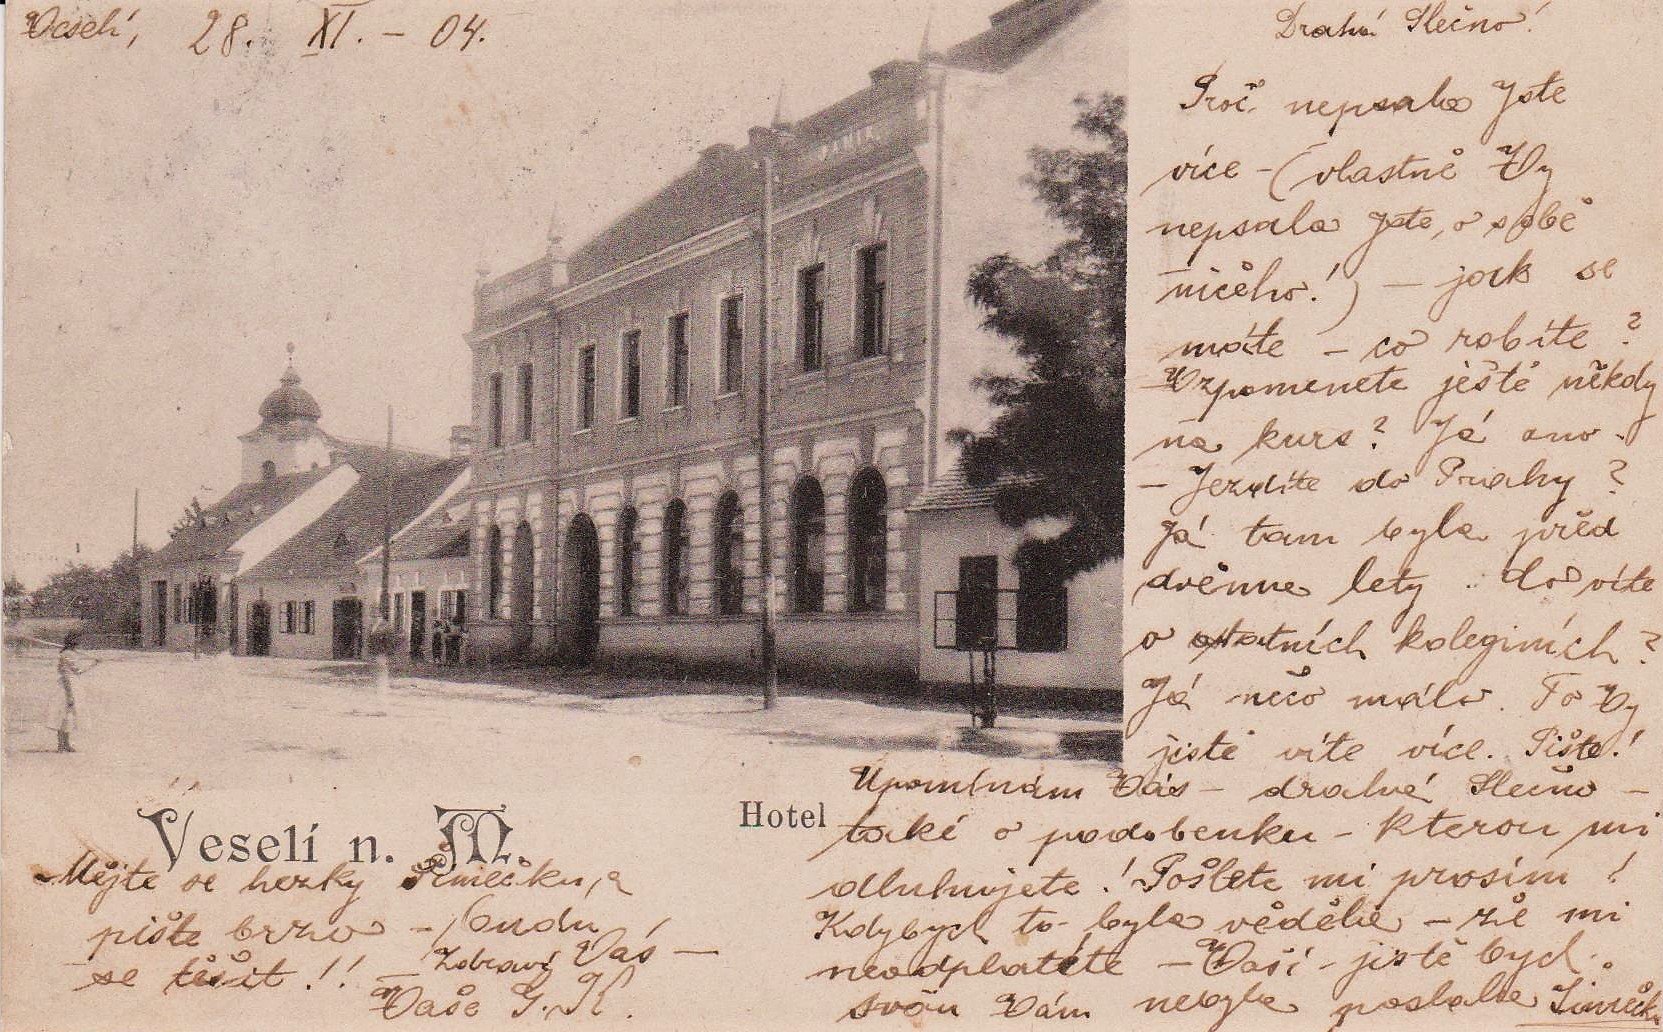 Veselí, 28. XI. – 04.
Drahá Slečno!
Proč nepsala Jste
více – (vlastně Vy
nepsala Jste, o sobě
ničeho!) – jak se
máte – co robíte?
Vzpomenete ještě někdy
na kurs? Já ano.
– Jezdíte do Prahy?
Já tam byla před
dvěma lety. Co víte
o ostatních koleginích?
Já něco málo. To Vy
jistě víte více. Pište!
Upomínám Vás – drahá Slečno –
také o podobenku – kterou mi
dluhujete! Pošlete mi prosím!
Kdybych to byla věděla – že mi
neodplatíte – Vaší – jistě bych
svou Vám nebyla poslala
Veselí n. M.
Hotel
Mějte se hezky
pište brzo – budu
se těšit!! – Zdraví Vás –
Vaše G. K.